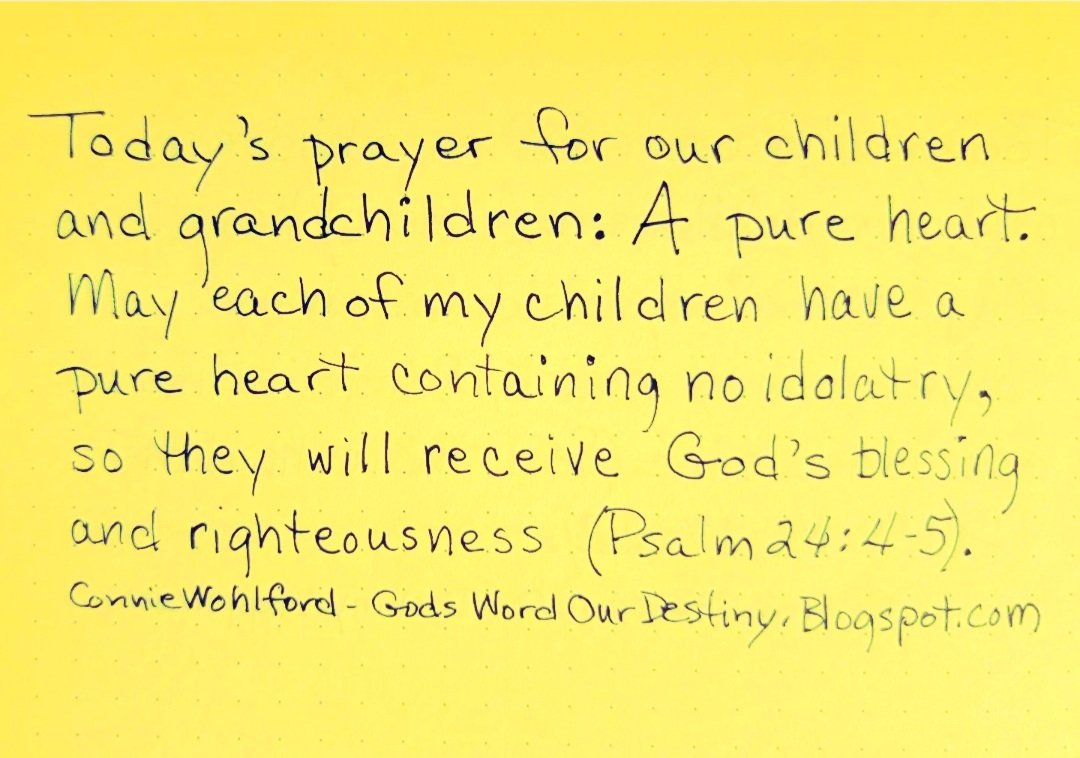 Today's prayer for our children
and grandchildren: A pure heart.
May each of my children have a
pure heart containing no idolatry,
so they will receive God's blessing
and righteousness (Psalm 24:4-5).
Connie Wohlford - Gods Word Our Destiny. Blogspot.com